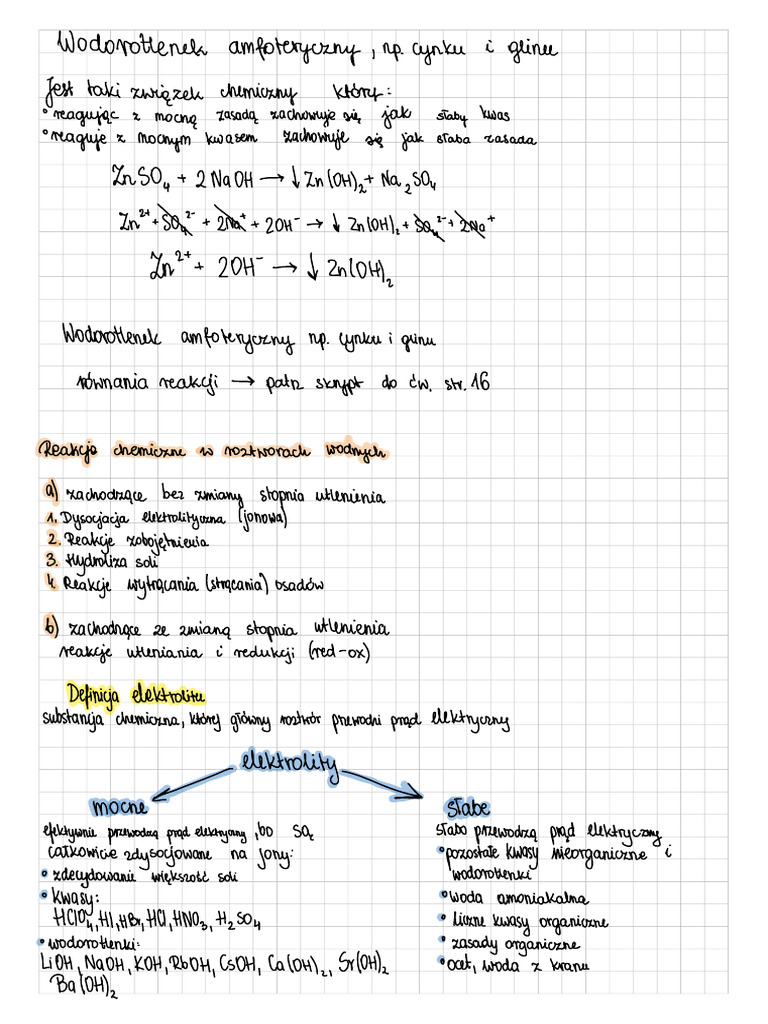 Wodorotlenek amfoteryczny, np. cynku i glinu
Jest taki związek chemiczny który:
• reagując z mocną zasadą zachowuje się jak słaby kwas
• reaguje z mocnym kwasem zachowuje się jak słaba zasada
ZnSO₄ + 2 NaOH → ↓ Zn(OH)₂ + Na₂SO₄
Zn²⁺ + SO₄²⁻ + 2Na⁺ + 2OH⁻ → ↓ Zn(OH)₂ + SO₄²⁻ + 2Na⁺
Zn²⁺ + 2OH⁻ → ↓ Zn(OH)₂
Wodorotlenek amfoteryczny np. cynku i glinu
równania reakcji → patrz skrypt do ćw. str. 16
Reakcje chemiczne w roztworach wodnych
a) zachodzące bez zmiany stopnia utlenienia
1. Dysocjacja elektrolityczna (jonowa)
2. Reakcje zobojętnienia
3. Hydroliza soli
4. Reakcje wytrącania (strącania) osadów
b) zachodzące ze zmianą stopnia utlenienia
reakcje utleniania i redukcji (red-ox)
Definicja elektrolitu
substancja chemiczna, której główny roztwór przewodni prąd elektryczny
elektrolity
mocne
efektywnie przewodzą prąd elektryczny, bo są
całkowicie zdysocjowane na jony:
• zdecydowanie większość soli
• kwasy:
HClO₄, HI, HBr, HCl, HNO₃, H₂SO₄
• wodorotlenki:
LiOH, NaOH, KOH, RbOH, CsOH, Ca(OH)₂, Sr(OH)₂
Ba(OH)₂
słabe
słabo przewodzą prąd elektryczny
• pozostałe kwasy nieorganiczne i
wodorotlenki
• woda amoniakalna
• liczne kwasy organiczne
• zasady organiczne
• ocet, woda z kranu